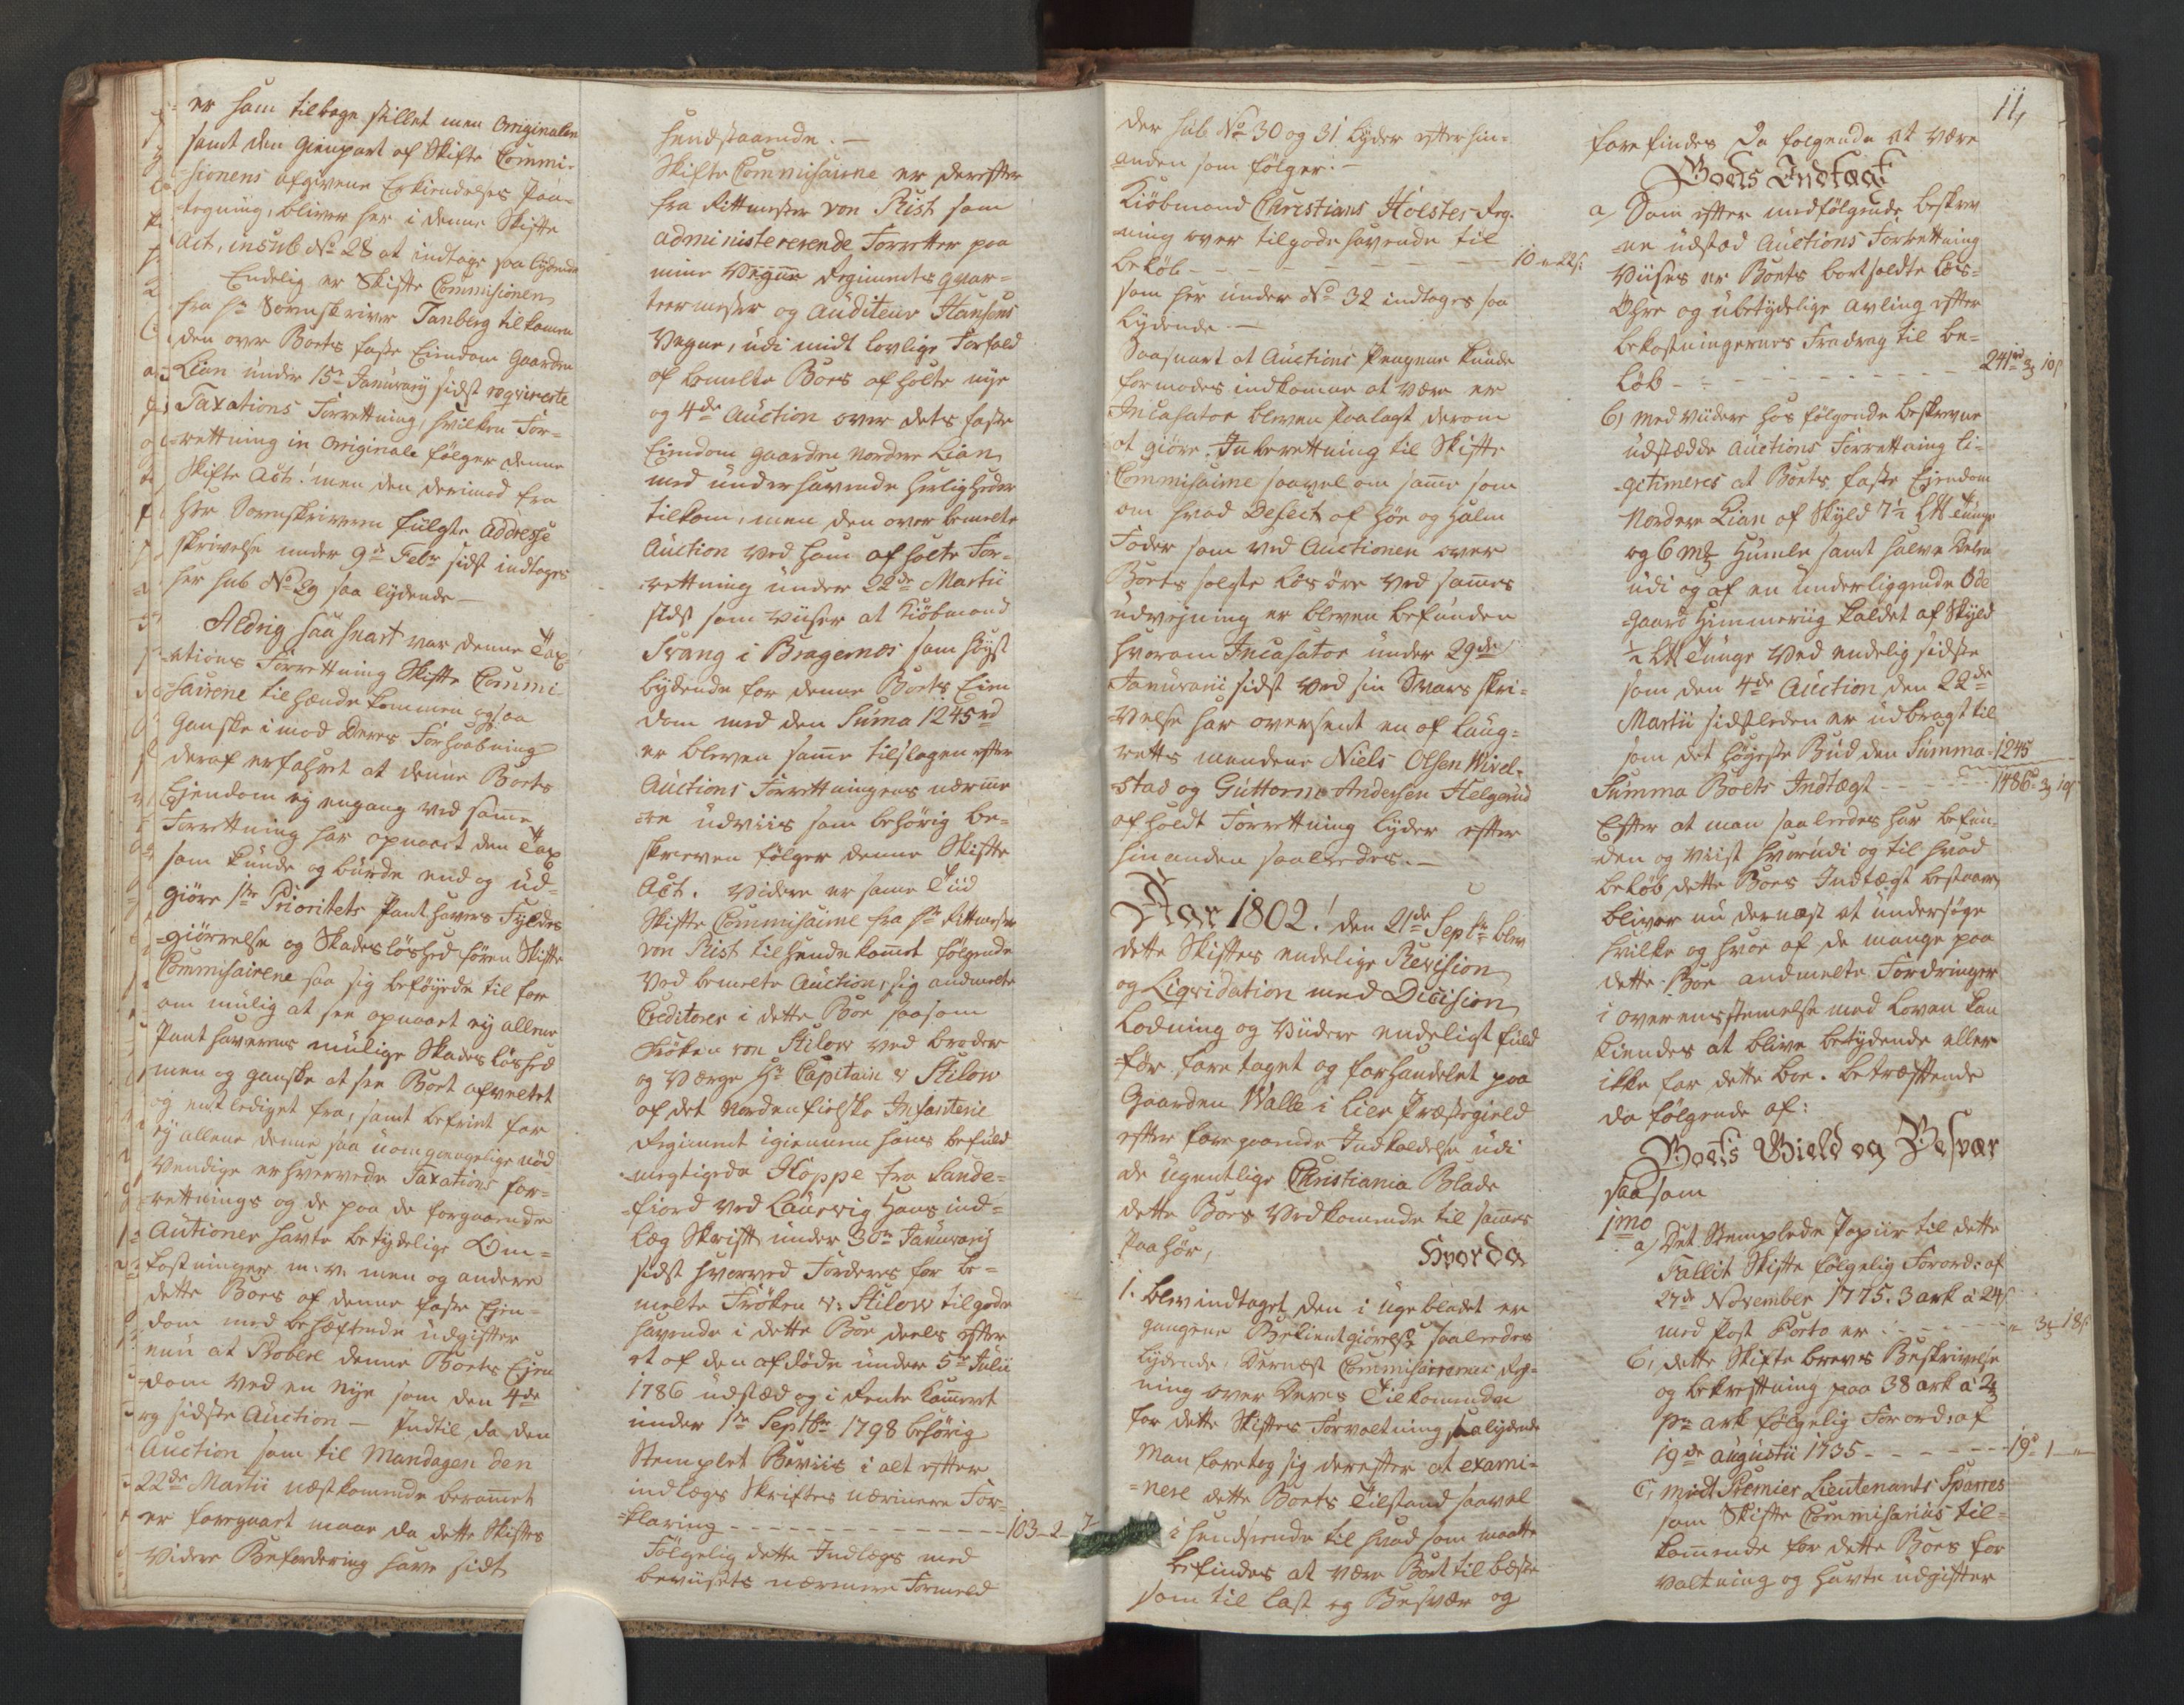 er ham tilbage stillet men Originalen
samt den Gienpart af Skifte Commi-
sionens afgivene Erkiendelses Paa-
tegning, bliver her i denne Skifte
Act, insub No 28 at indtage saa lydende
Endelig er Skifte Commisionen
fra Hr Sorenskriver Tanberg tilkommen
den over Boets faste Eiendom Gaarden
Lian under 15de Januarij sidst reqvirerte
Taxations Forrettning, hvilken For-
rettning in Originale følger denne
Skifte Act! men den derimed fra
Hr Sorenskriveren fulgte Addresse
skrivelse under 9de Febr sidst indtages
her sub No 29 saa lydende -
Aldrig saa snart var denne Tax
ations Forrettning Skifte Commi-
sairene tilhænde kommen og saa
ganske imod Deres Forhaabning
deraf erfahret at denne Boets
Ejendom ej engang ved samme
Forrettning har opnaaet den Tax
som kunde og burde end og ud-
giøre 1ste Prioritets Panthavers Fyldest-
giørelse og Skadesløshed føren Skifte
Commisairene saa sig beføyede til for
om mulig at see opnaaet ej allene
Panthaverens mulige Skadesløshed
men og ganske at see Boet afveltet
og entlediget fra, samt befriet for
ej allene denne saa uomgiængelige nød
vendige erhvervede Taxations for-
rettnings og de paa de forgaaende
Auctioner havte betydelige Om-
kostninger m: v: men og andere
dette Boes af denne faste Ejen-
dom med behæftende udgifter
enu at Probere denne Boets Ejen
dom ved en nye som den 4de
og sidste Auction - Indtil da den
Auction som til Mandagen den
22de Martii næstkommende berammet
er foregaaet maae da dette Skiftes
videre Befordering have sidt
henstaaende. -
Skifte Commisairne er derefter
fra Rittmester von Rist som
administrerende Forretter paa
mine Vegne Regiments qvar-
teermester og Auditeur Hansens
Vegne, udi midt lovlige Forfald
af bemelte Boes afholte nye
og 4de Auction over dets faste
Eiendom Gaarden Nordere Lian
med underhavende herligheder
tilkom, men den over bemelte
Auction ved ham afholte For-
rettning under 22de Martii
sidst som viiser at Kiøbmand
Svang i Bragernes som høyst
bydende for denne Boets Eien
dom med den Suma 1245 rd
er bleven samme tilslagen efter
Auctions Forrettningens nærme
re udviis som behørig be-
skreven følger denne Skifte
Act. Videre er same Tiid
Skifte Commisairne fra Hr Rittmester
von Rist tilhende komet følgende
ved bemelte Auction sig andmelte
Creditorer i dette Boe saasom
Frøken von Stilow ved broder
og Værge Hr Capitain v Stilow
af det Nordenfielske Infanterie
Regiment igiennem hans befuld
megtigede Hoppe fra Sande-
fiord ved Laurvig Hans ind-
læg Skrift under 30te Januarij
sidst hvorved Forderes for be-
melte Frøken v: Stilow tilgode
havende i dette Boe deels efter
et af den afdøde under 5te Julii
1786 udstæd og i Rente Kammert
under 1ste Septbr 1798 behørig
Stemplet Beviis i alt efter
indlægs Skriftes nærmere For-
klaring - - - 103 - 2 - 7
Følgelig dette Indlægs med
beviisets nærmere Formeld
11,
der sub No 30 og 31 lyder efter hin-
anden som følger: -
Kiøbmand Christians Holstes Reg-
ning over tilgode havende til
beløb - - - 10 - " 22 s:
som her under No 32 indtages saa
lydende. -
Saasnart at Auctions Pengene kunde
formodes indkommen at være er
Incasator bleven Paalagt derom
at giøre Inberettning til Skifte
Commisairne saavel om samme som
om hvad Defect af Høe og Halm
Foder som ved Auctionen over
Boets solgte Løsøre ved sammes
udvejning er bleven befunden
hvorom Incasator under 29de
Januarii sidst ved sin Svars skri-
velse har oversent en af Laug-
retts mendene Niels Olsen Wivel-
stad og Guttorm Andersen Helgerud
afholdt Forrettning lyder efter
hinanden saaledes. -
Aar 1802! den 21de Septbr blev
dette Skiftes endelige Revision
og Liqvidation med Dicision
Lodning og viidere endeligt fuld
før foretaget og forhandelet paa
Gaarden Walle i Lier Præstegield
efter foregaaende Indkaldelse udi
de ugentlige Christiania Blade
dette Boes vedkommende til sammes
Paahør, Hvorda
1. blev indtaget den i ugebladet er
gangene Bekientgiørelse saaledes
lydende dernæst Commisairernes Reg-
ning over Deres Tilkommende
for dette Skiftes Forvaltning saa lydende
Man foretog sig derefter at exami-
nere dette Boets Tilstand saavel
i henseende til hvad som maatte
befindes at være Boet til bæste
som til Last og Besvær og
forefindes da følgende at være
Boets Indtægt
a) Som efter medfølgende beskrev
ne udstæd Auctions Forrettning
viises er Boets bortsoldte Løs-
Øhre og ubetydelige avling efter
bekostningernes Fradrag til be-
løb - - - 241 rd 3 10 s
b) med viidere hos følgende beskrevne
udstædde Auctions Forrettning li-
gitimeres at Boets faste Ejendom
Nordere Lian af Skyld 7½ Tunge
og 6 Humle samt halve Delen
udi og af en underliggende Øde
gaard Himmeriig kaldet af Skyld
½ Tunge ved endelig sidste
som den 4de Auction den 22de
Martii sidstleden er udbragt til
som det høyeste Bud den Summa - 1245
Summa Boets Indtægt - - - 1486 rd 3 10 s
Efter at man saaledes har befun-
den og viist hvorudi og til hvad
beløb dette Boes Indtægt bestaaer
bliver nu dernæst at undersøge
hvilke og hvor af de mange paa
dette Boe andmelte Fordringer
i overensstemelse med Loven kan
kiendes at blive betydende eller
ikke for dette boe. betræffende
da følgende af:
Boets Gield og Besvær
saasom
1mo
a) Det Stemplede Papiir til dette
Fallit Skifte følgelig Forord: af
27de November 1775. 3 ark a 24 s
med Post Porto er: - - - " 3 18 s
b, dette Skifte brevs Beskrivelse
og bekræftning paa 38 ark a 2
pr ark følgelig Forord: af
19de Augustii 1735 - - - 19 rd 1 - "
c, midt Premier Lieutenants Sparres
som Skifte Commisarius til-
kommende for dette Boes for
valtning og havte udgifter